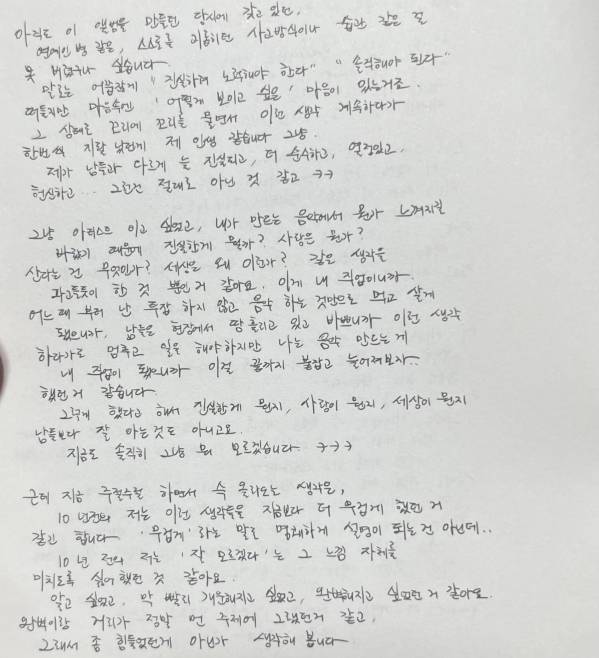 아직도 이 앨범을 만들던 당시에 갖고 있던,
연예인병 같은, 스스로를 괴롭히던 사고방식이나 습관 같은 걸
못 버렸구나 싶습니다.
말로는 어쭙잖게 "진실하려 노력해야 한다" "솔직해야 된다"
떠들지만 마음속엔 '어떻게 보이고 싶은' 마음이 있는거죠.
그 상태로 꼬리에 꼬리를 물면서 이런 생각 계속하다가
한번씩 지랄 났던게 제 인생 같습니다 그냥.
제가 남들과 다르게 늘 진실되고, 더 순수하고, 열정있고,
헌신하고... 그런건 절대로 아닌 것 같고 ㅋㅋ
그냥 아티스트 이고 싶었고, 내가 만드는 음악에서 뭔가 느껴지길
바랬기 때문에 진실한게 뭘까? 사랑은 뭔가?
산다는 건 무엇인가? 세상은 왜 이런가? 같은 생각을
파고들듯이 한 것 뿐인거 같아요. 이게 내 직업이니까.
어느 때 부터 난 투잡 하지 않고 음악 하는 것만으로 먹고 살게
됐으니까, 남들은 현장에서 땀 흘리고 있고 바쁘니까 이런 생각
하다가도 멈추고 일을 해야하지만 나는 음악 만드는게
내 직업이 됐으니까 이걸 끝까지 붙잡고 늘어져보자..
했던거 같습니다.
그렇게 했다고 해서 진실한게 뭔지, 사랑이 뭔지, 세상이 뭔지
남들보다 잘 아는것도 아니고요.
지금도 솔직히 그냥 뭐 모르겠습니다 ㅋㅋㅋ
근데 지금 주절주절 하면서 슥 올라오는 생각은,
10년전의 저는 이런 생각들을 지금보다 더 무겁게 했던 거
같긴 합니다. '무겁게' 라는 말로 명쾌하게 설명이 되는건 아닌데..
10년 전의 저는 '잘 모르겠다'는 그 느낌 자체를
미치도록 싫어했던 것 같아요.
알고 싶었고, 막 빨리 개운해지고 싶었고, 완벽해지고 싶었던거 같아요.
완벽이랑 거리가 정말 먼 주제에 그랬던거 같고,
그래서 좀 힘들었던게 아닌가 생각해 봅니다